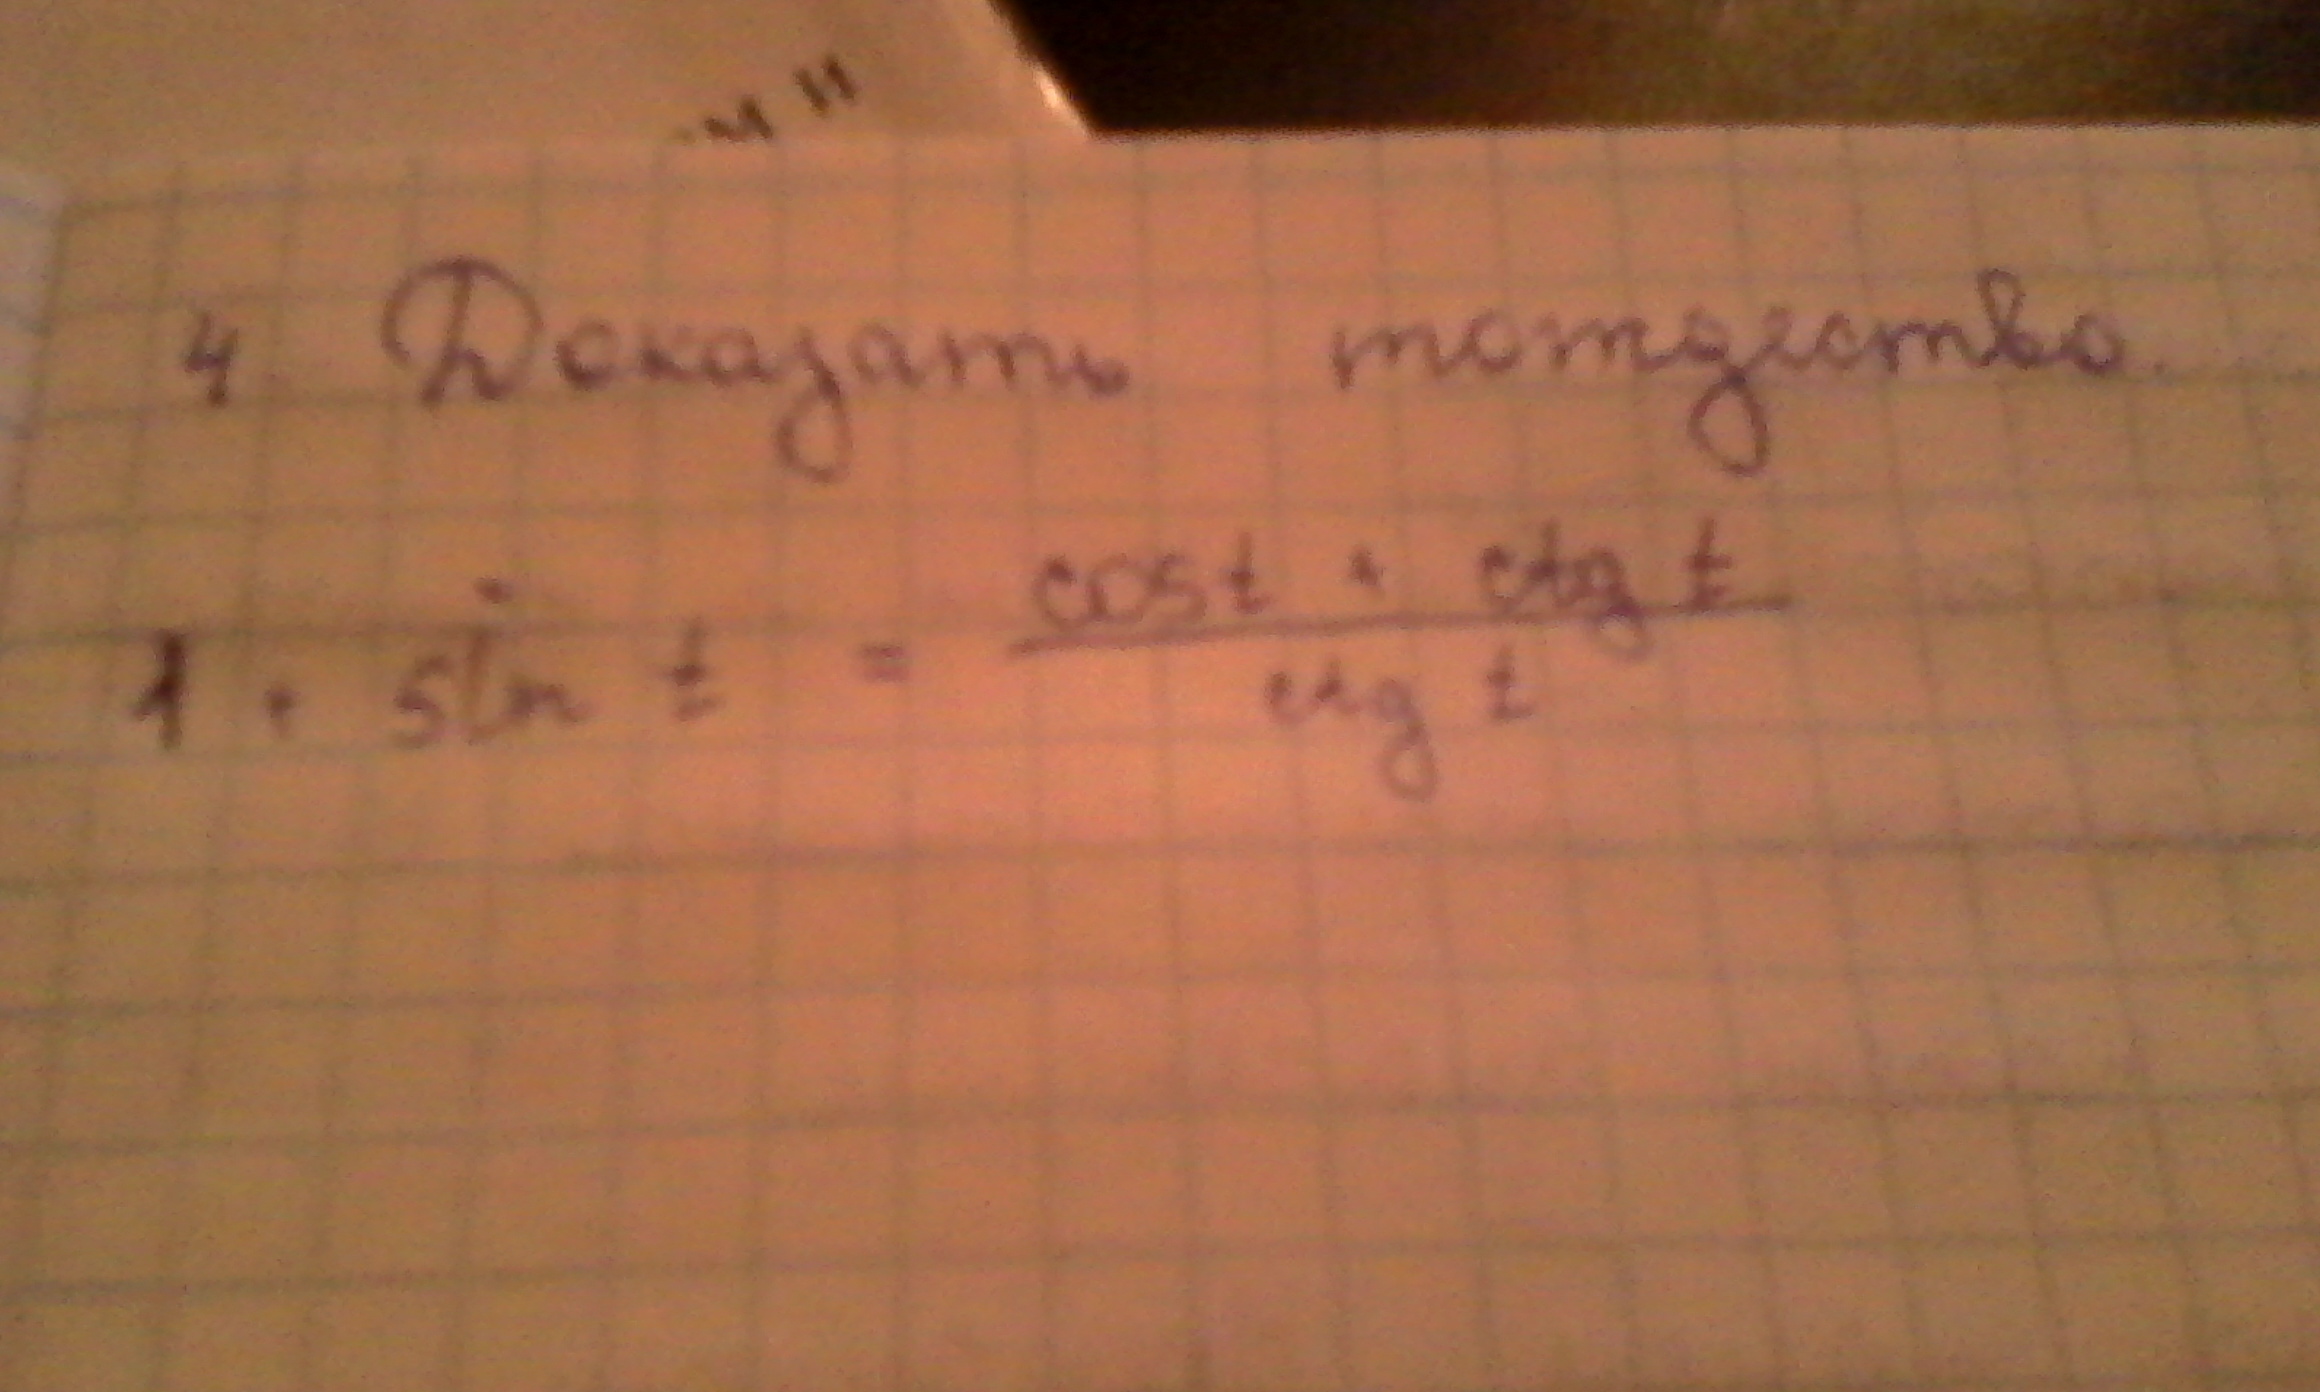 4. Доказать тотдество.
1 + sin t = \frac{cos t + ctg t}{ctg t}